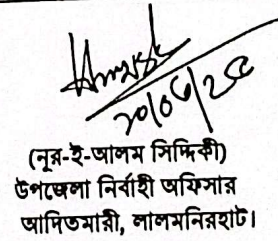 ২০/০৫/২৫
(নূর-ই-আলম সিদ্দিকী)
উপজেলা নির্বাহী অফিসার
আদিতমারী, লালমনিরহাট।